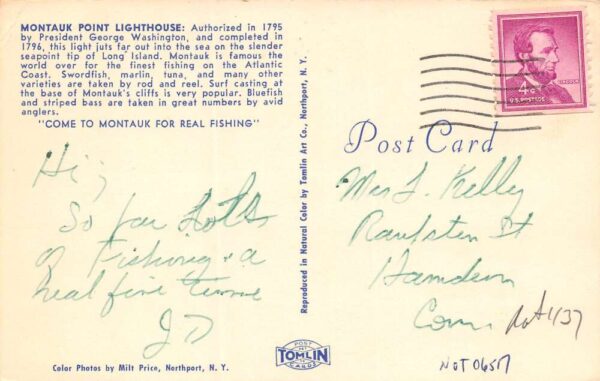 MONTAUK POINT LIGHTHOUSE: Authorized in 1795
by President George Washington, and completed in
1796, this light juts far out into the sea on the slender
seapoint tip of Long Island. Montauk is famous the
world over for the finest fishing on the Atlantic
Coast. Swordfish, marlin, tuna, and many other
varieties are taken by rod and reel. Surf casting at
the base of Montauk's cliffs is very popular. Bluefish
and striped bass are taken in great numbers by avid
anglers.
"COME TO MONTAUK FOR REAL FISHING"
Hi;
So far Lots
of Fishing + a
real fine time
JD
Color Photos by Milt Price, Northport, N. Y.
Reproduced in Natural Color by Tomlin Art Co., Northport, N. Y.
POST
TOMLIN
CARDS
LINCOLN
4¢
U.S. POSTAGE
Post Card
Mrs J. Kelly
St
Hamden
Conn